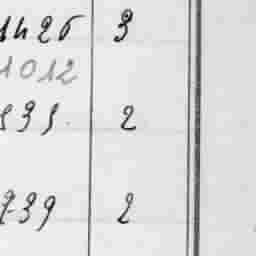 1425 3
1012
939. 2
739 2